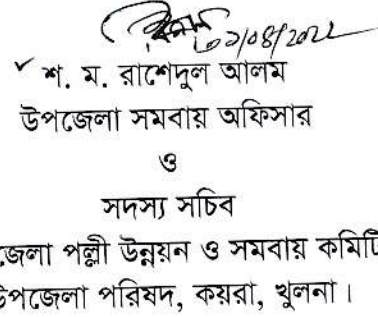 ০১/০৪/২০২২
শ. ম. রাশেদুল আলম
উপজেলা সমবায় অফিসার
ও
সদস্য সচিব
জেলা পল্লী উন্নয়ন ও সমবায় কমিটি
উপজেলা পরিষদ, কয়রা, খুলনা।